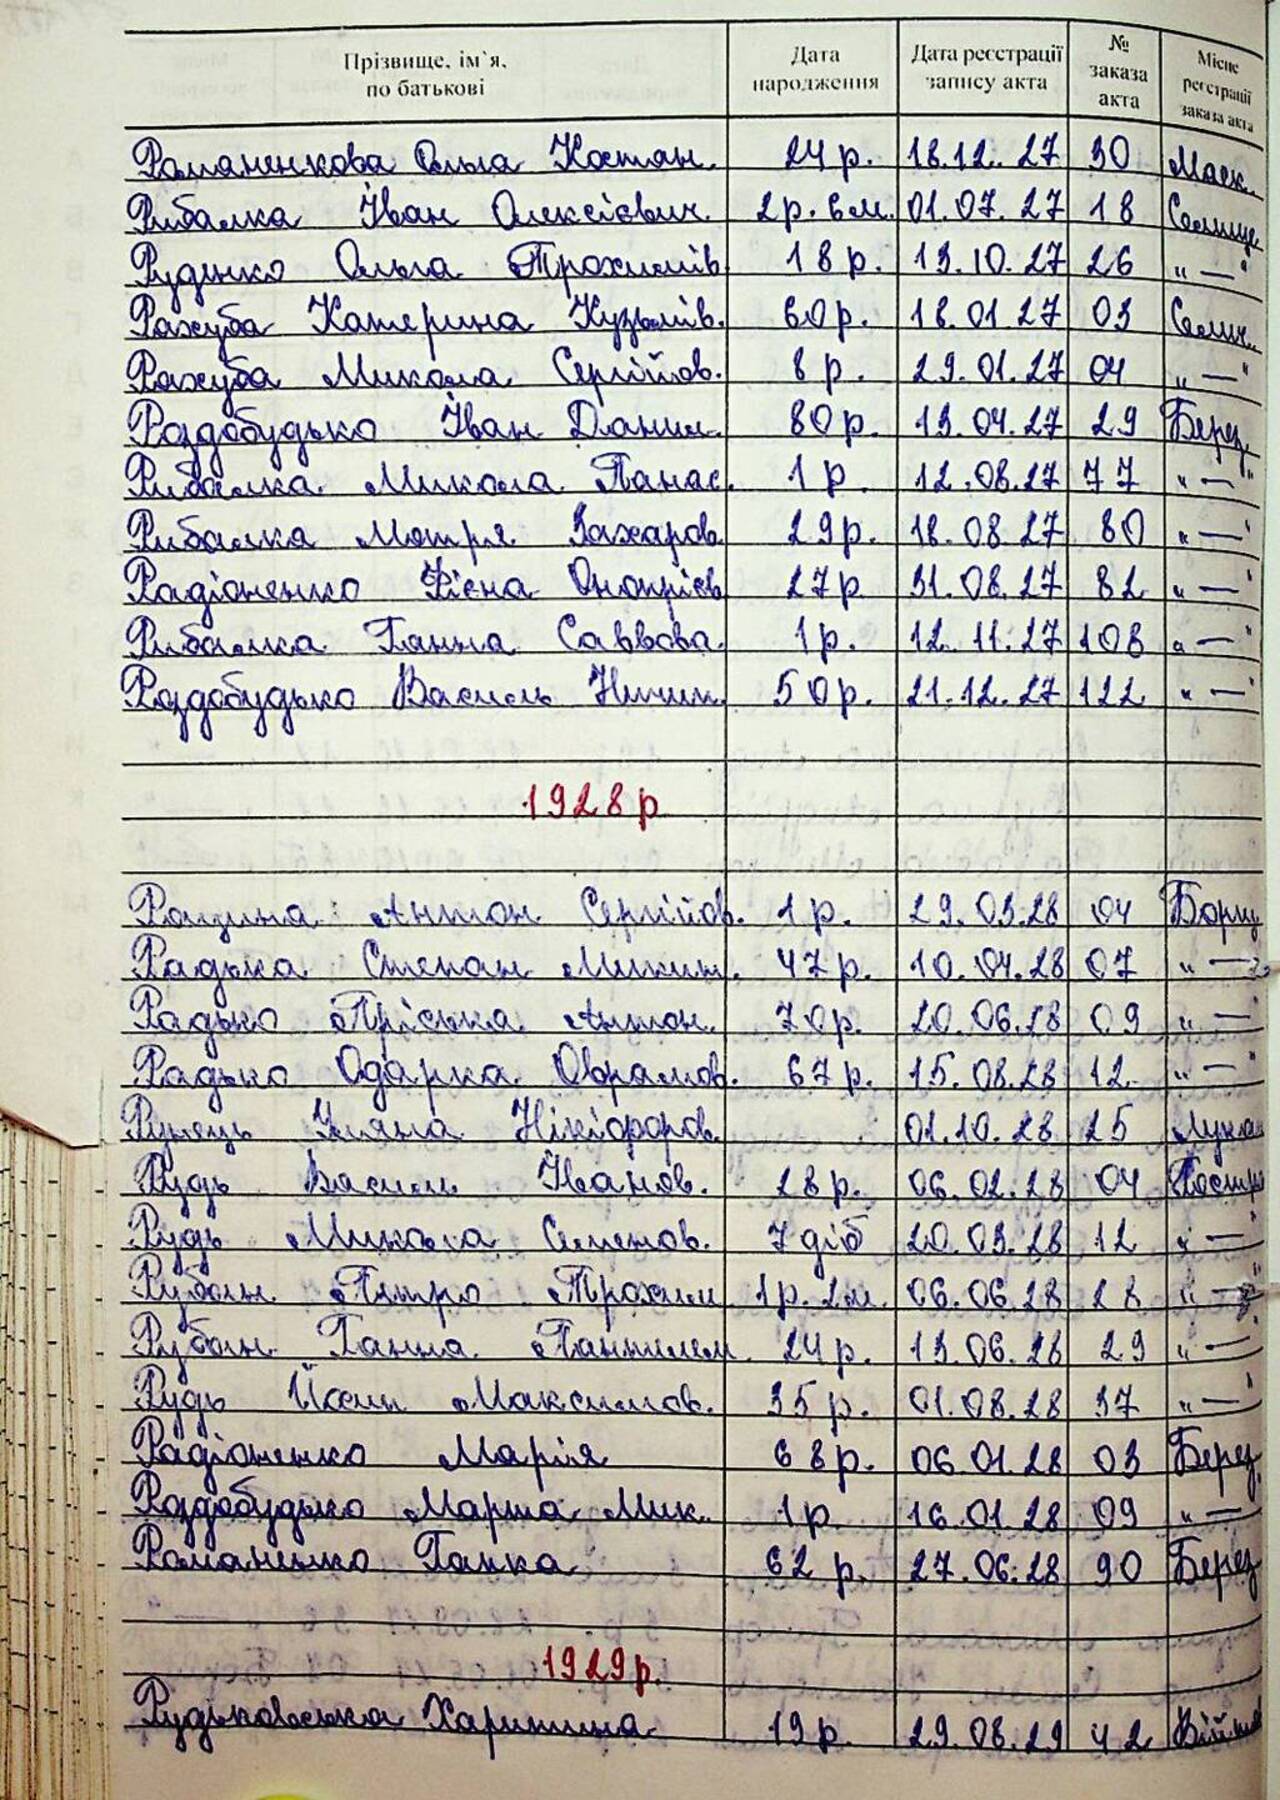 Прізвище, ім`я, по батькові | Дата народження | Дата реєстрації запису акта | № заказа акта | Місце реєстрації заказа акта
Романенкова Ольга Костян. 24 р. 18.12.27 30 Маек.
Рибалка Іван Олексієвич. 2р. 6м. 01.07.27 18 Селище
Руденко Ольга Трохимів 18 р. 13.10.27 26 "—"
Рахуба Катерина Кузьмів. 60 р. 18.01.27 03 Селищ.
Рахуба Микола Сергійов. 8 р. 29.01.27 04 "—"
Роздобудько Іван Данил. 80 р. 13.04.27 29 Берез.
Рибалка Микола Панас. 1 р. 12.08.27 77 "—"
Рибалка Мотря Захаров. 29р. 18.08.27 80 "—"
Радіоненко Фієна Онопрієв 27 р 31.08.27 82 "—"
Рибалка Ганна Саввова. 1 р. 12.11.27 108 "—"
Роздобудько Василь Ничип. 50 р. 21.12.27 122 "—"
1928 р
Рощина Антон Сергійов. 1 р. 29.03.28 04 Борщ
Радька Степан Микит. 47 р. 10.04.28 07 "—"
Радько Пріська Антон. 70р. 20.06.28 09 "—"
Радько Одарка Оврамов. 67 р. 15.08.28 12 "—"
Рунець Уляна Нікіфоров. 01.10.28 25 Лука
Рудь Василь Іванов. 28 р. 06.02.28 04
Рудь Микола Семенов. 7 діб 20.03.28 12 "—"
Рубан Петро Трохим 1р. 2м. 06.06.28 28 "—"
Рубан Ганна Пантилем. 24 р. 13.06.28 29 "—"
Рудь Йосип Максимов. 35 р. 01.08.28 37 "—"
Радіоненко Марія 68 р. 06.01.28 03 Берез.
Роздобудько Марта Мик. 1 р. 16.01.28 09 "—"
Романенко Ганка 62 р. 27.06.28 90 Берез
1929 р.
Рудьковська Харитина 19 р. 29.08.29 42